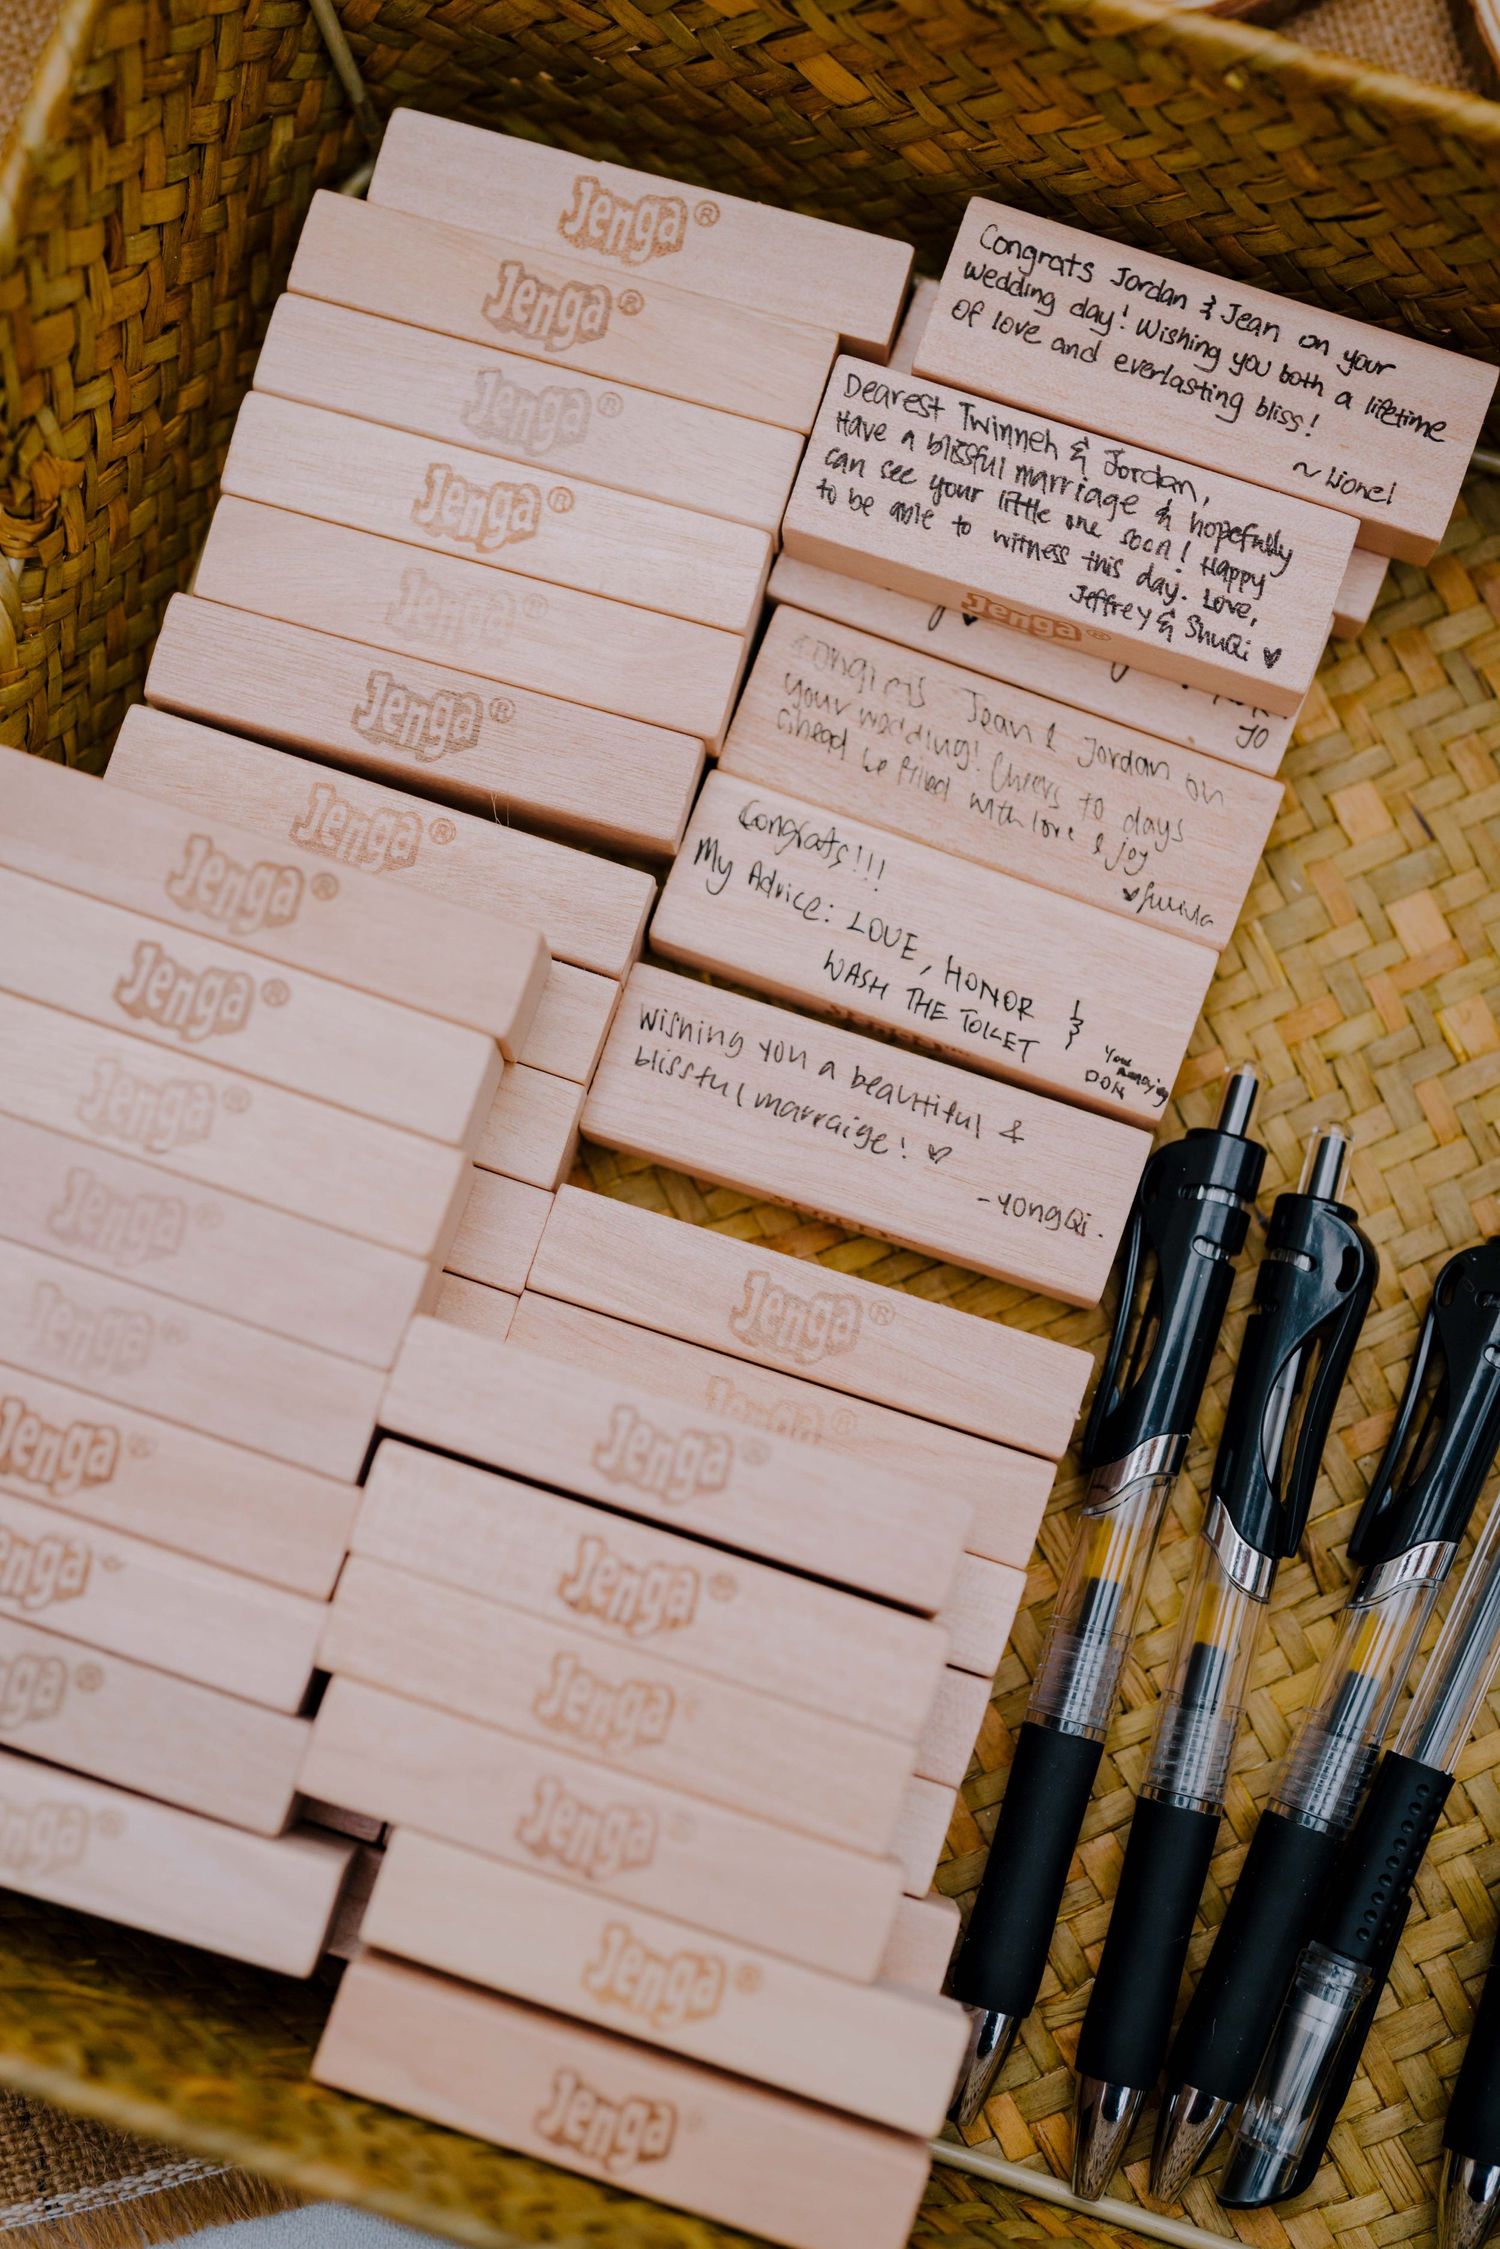 Congrats Jordan & Jean on your
wedding day! Wishing you both a lifetime
of love and everlasting bliss!
~ Lionel
Dearest Twinneh & Jordan,
Have a blissful marriage & hopefully
can see your little one soon! Happy
to be able to witness this day. Love,
Jeffrey & ShuQi ♥
Jenga®
JO
Congrats Jean & Jordan on
your wedding! Cheers to days
ahead be filled with love & joy
Congrats!!!
My Advice: LOVE, HONOR &
WASH THE TOILET
Your Annoying
DON
Wishing you a beautiful &
blissful marraige! ♡
- YongQi.
Jenga®
Jenga®
Jenga®
Jenga®
Jenga®
Jenga®
Jenga®
Jenga®
Jenga®
Jenga®
Jenga®
Jenga®
Jenga®
enga®
nga®
nga®
Jenga®
Jenga®
Jenga®
Jenga®
Jenga
Jenga
Jenga®
Jenga